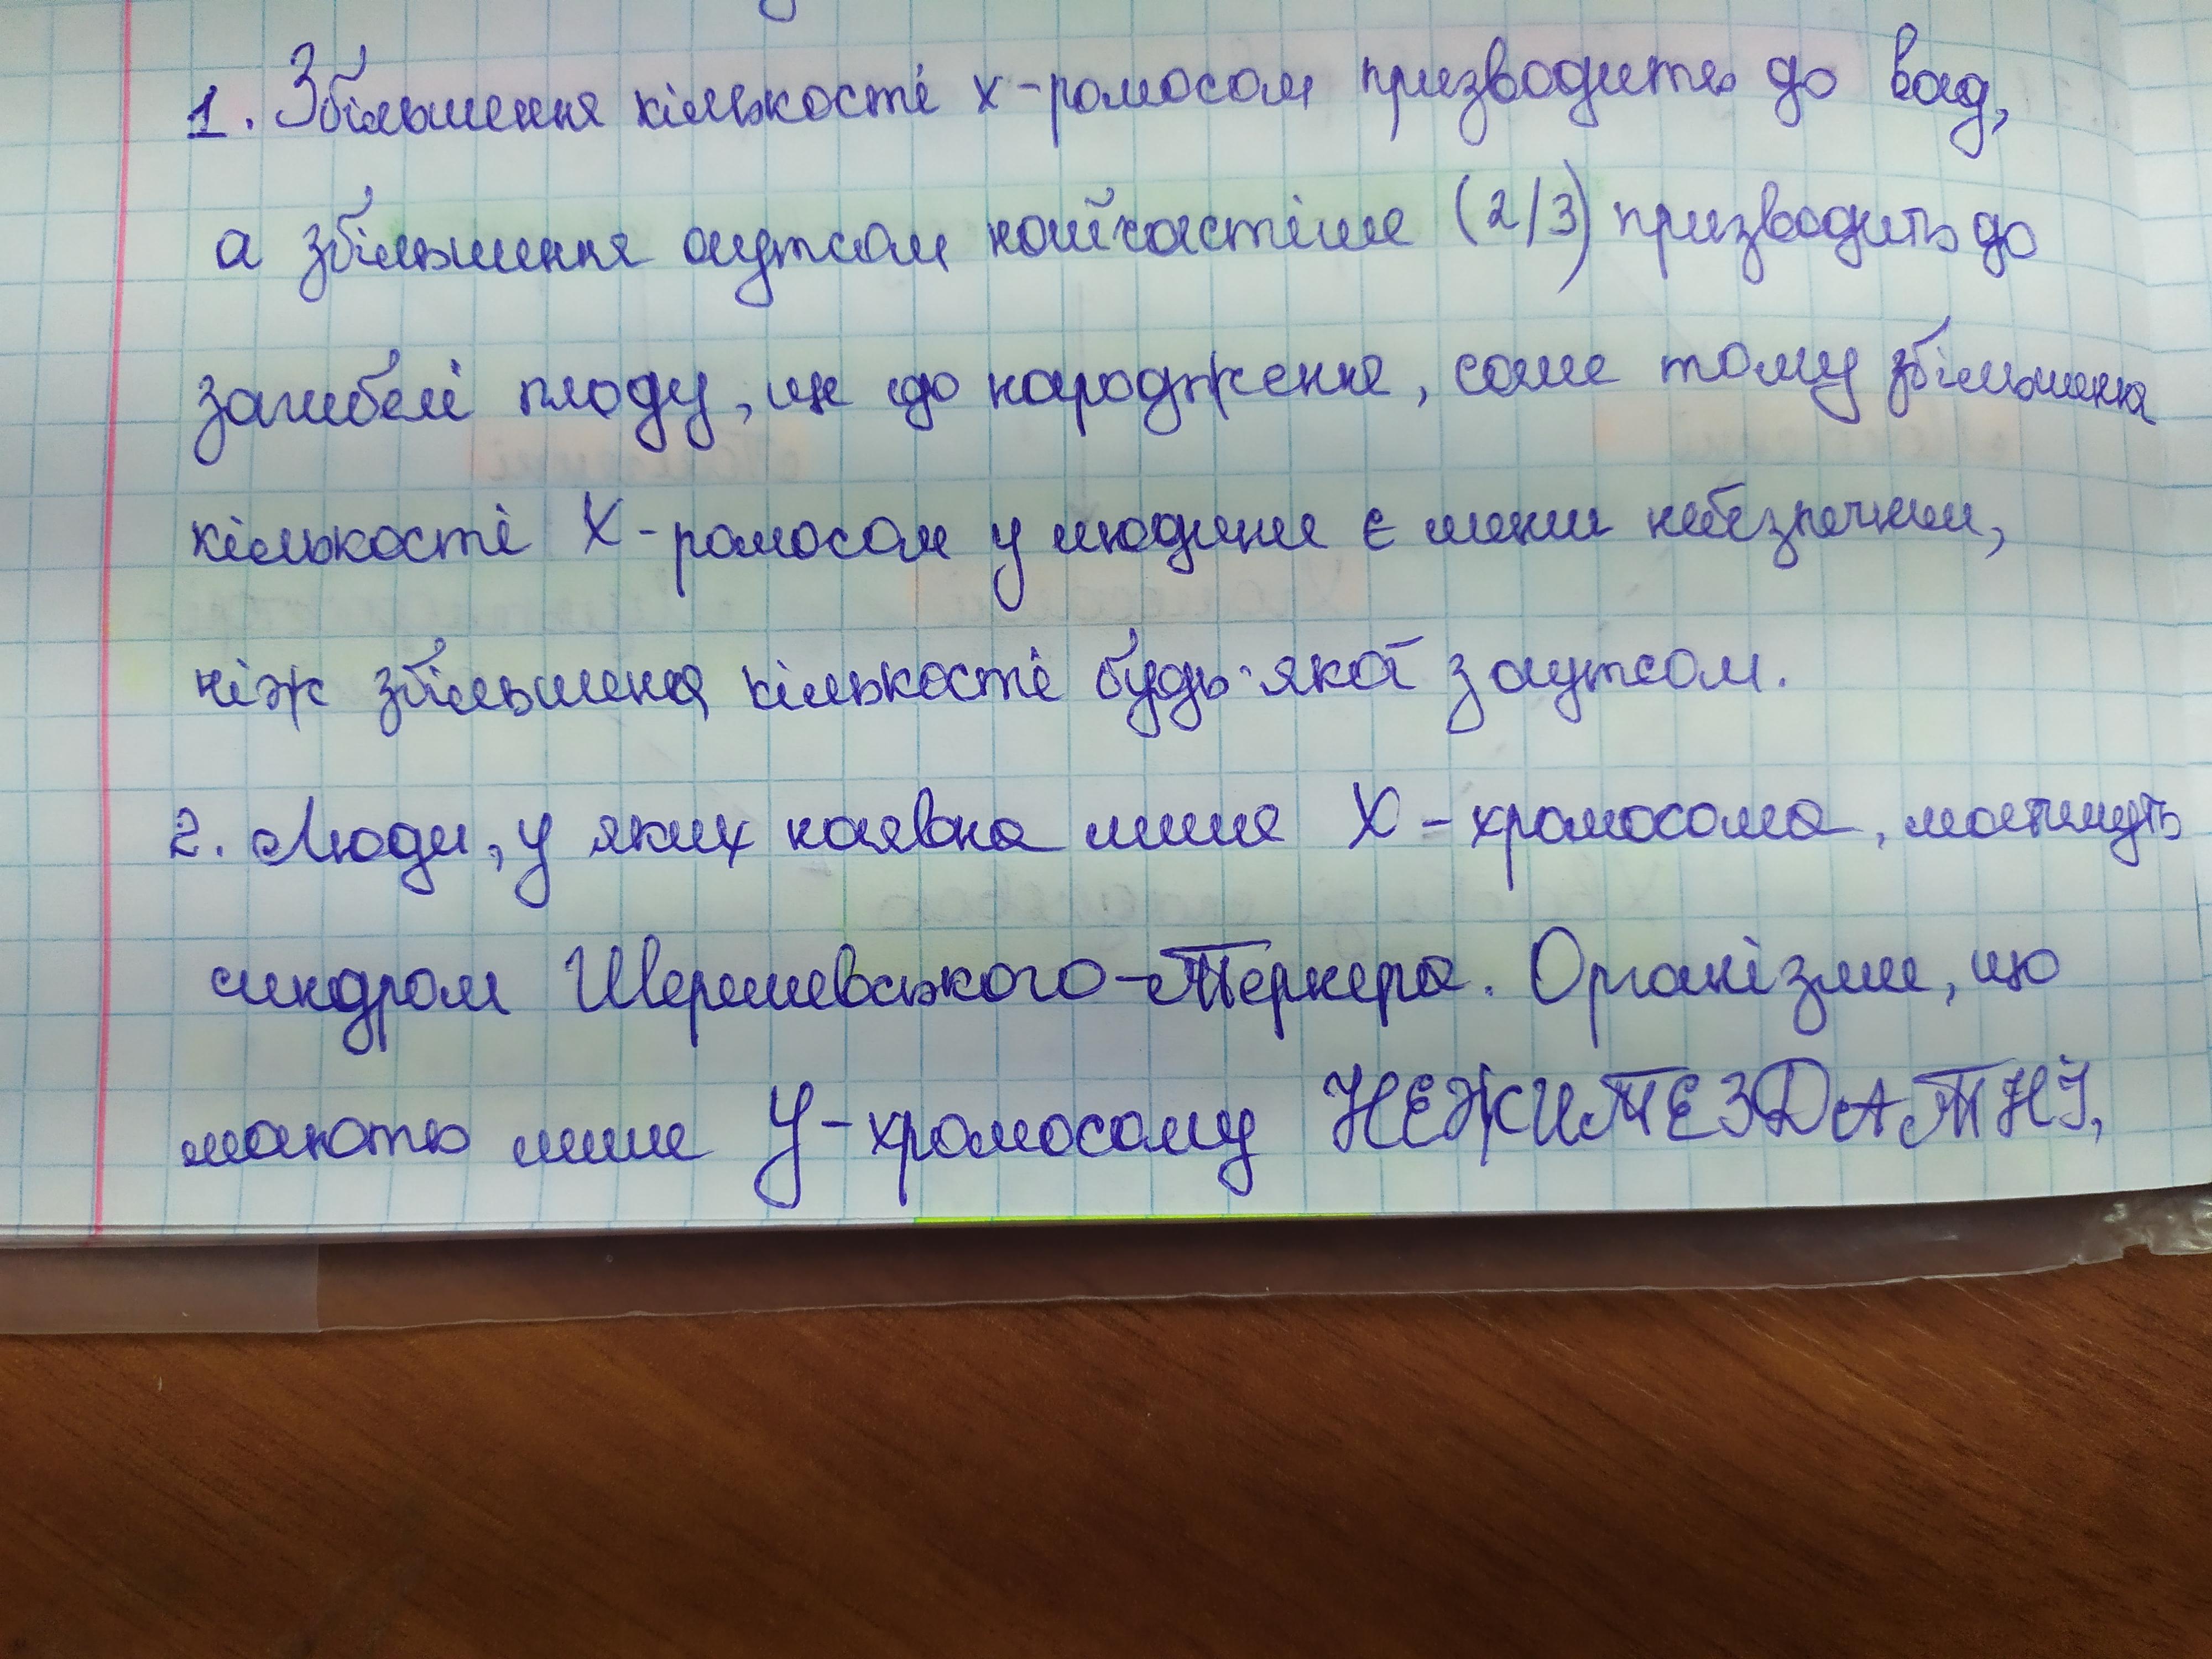 1. Збільшення кількості х-ромосом призводить до вад,
а збільшення аутсом найчастіше (2/3) призводить до
загибелі плоду, ще до народження, саме тому збільшення
кількості Х-ромосом у людини є менш небезпечним,
ніж збільшення кількості будь-якої з аутсом.
2. Люди, у яких наявна лише Х-хромосома, матимуть
синдром Шерешевського-Тернера. Організми, що
мають лише У-хромосому НЕЖИТЕЗДАТНІ,